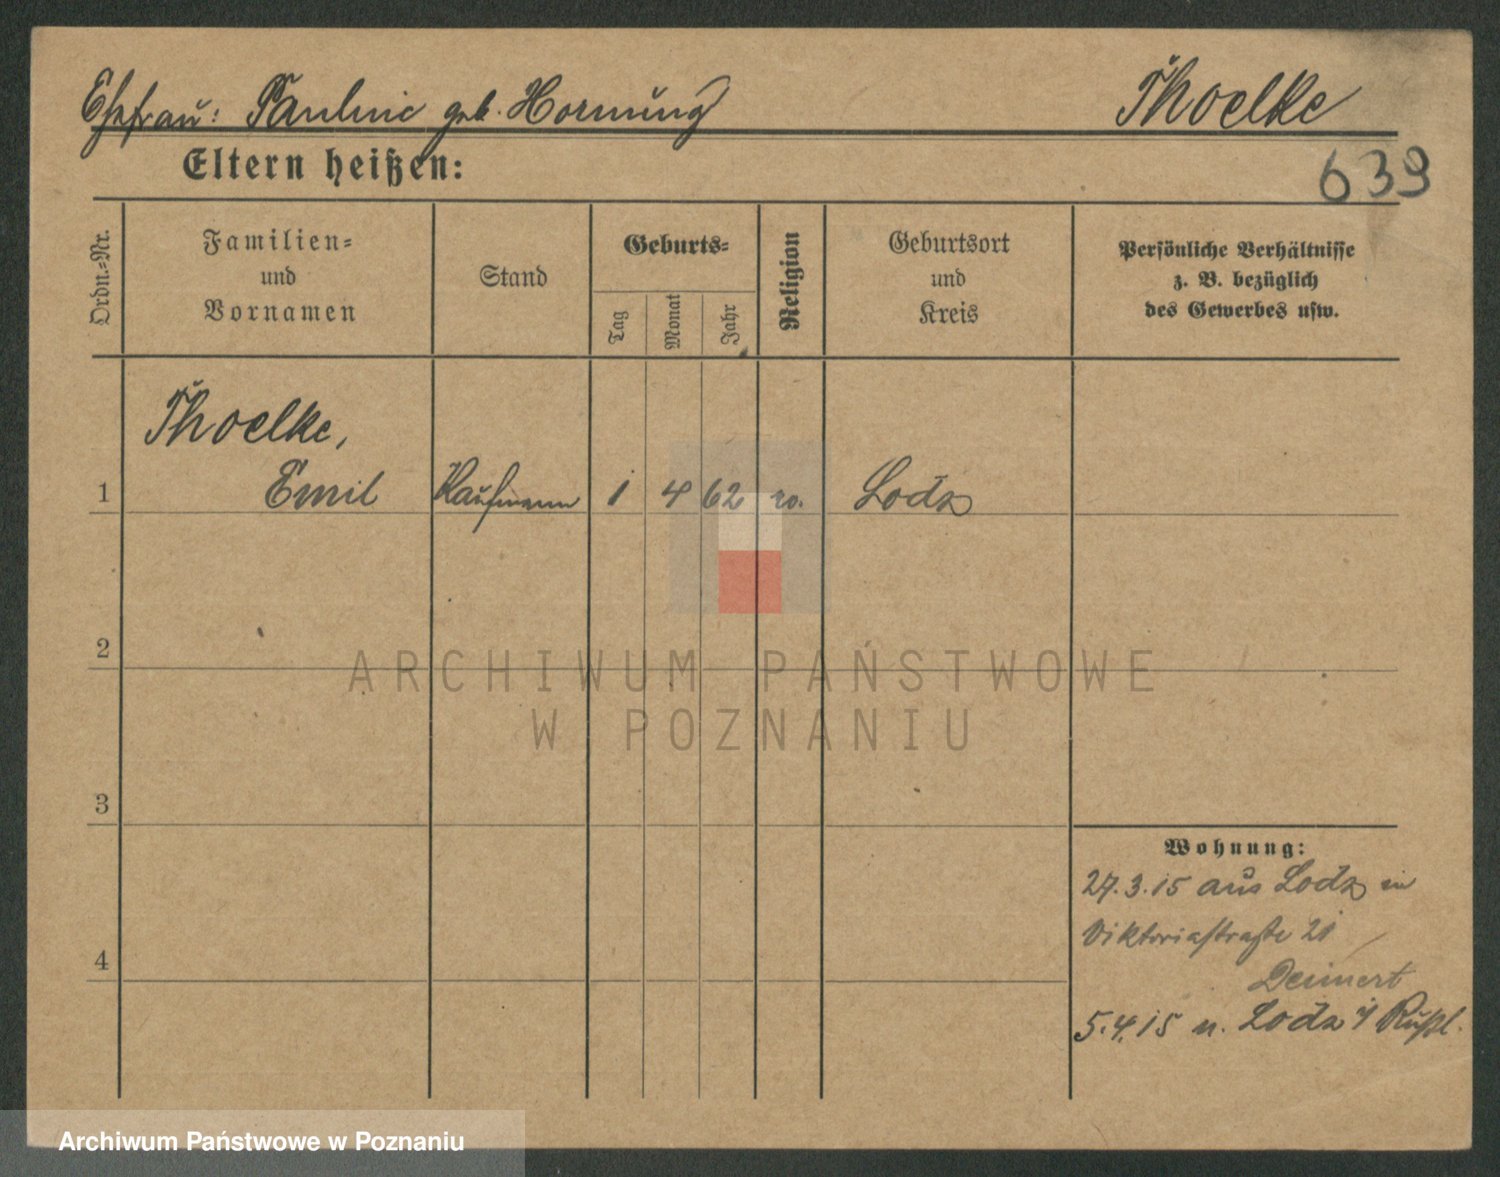 Ehefrau: Pauline geb. Hornung
Thoelke
Eltern heißen:
639
Ordn.=Nr.
Familien=
und
Vornamen
Stand
Geburts=
Tag
Monat
Jahr
Religion
Geburtsort
und
Kreis
Persönliche Verhältnisse
z. B. bezüglich
des Gewerbes usw.
Thoelke,
1 Emil Kaufmann 1 4 62 Lodz
2
ARCHIWUM PAŃSTWOWE
W POZNANIU
3
Wohnung:
27.3.15 aus Lodz in
Viktoriastraße 21
4
Deinert
5.4.15 n. Lodz i/ Rußl.
Archiwum Państwowe w Poznaniu